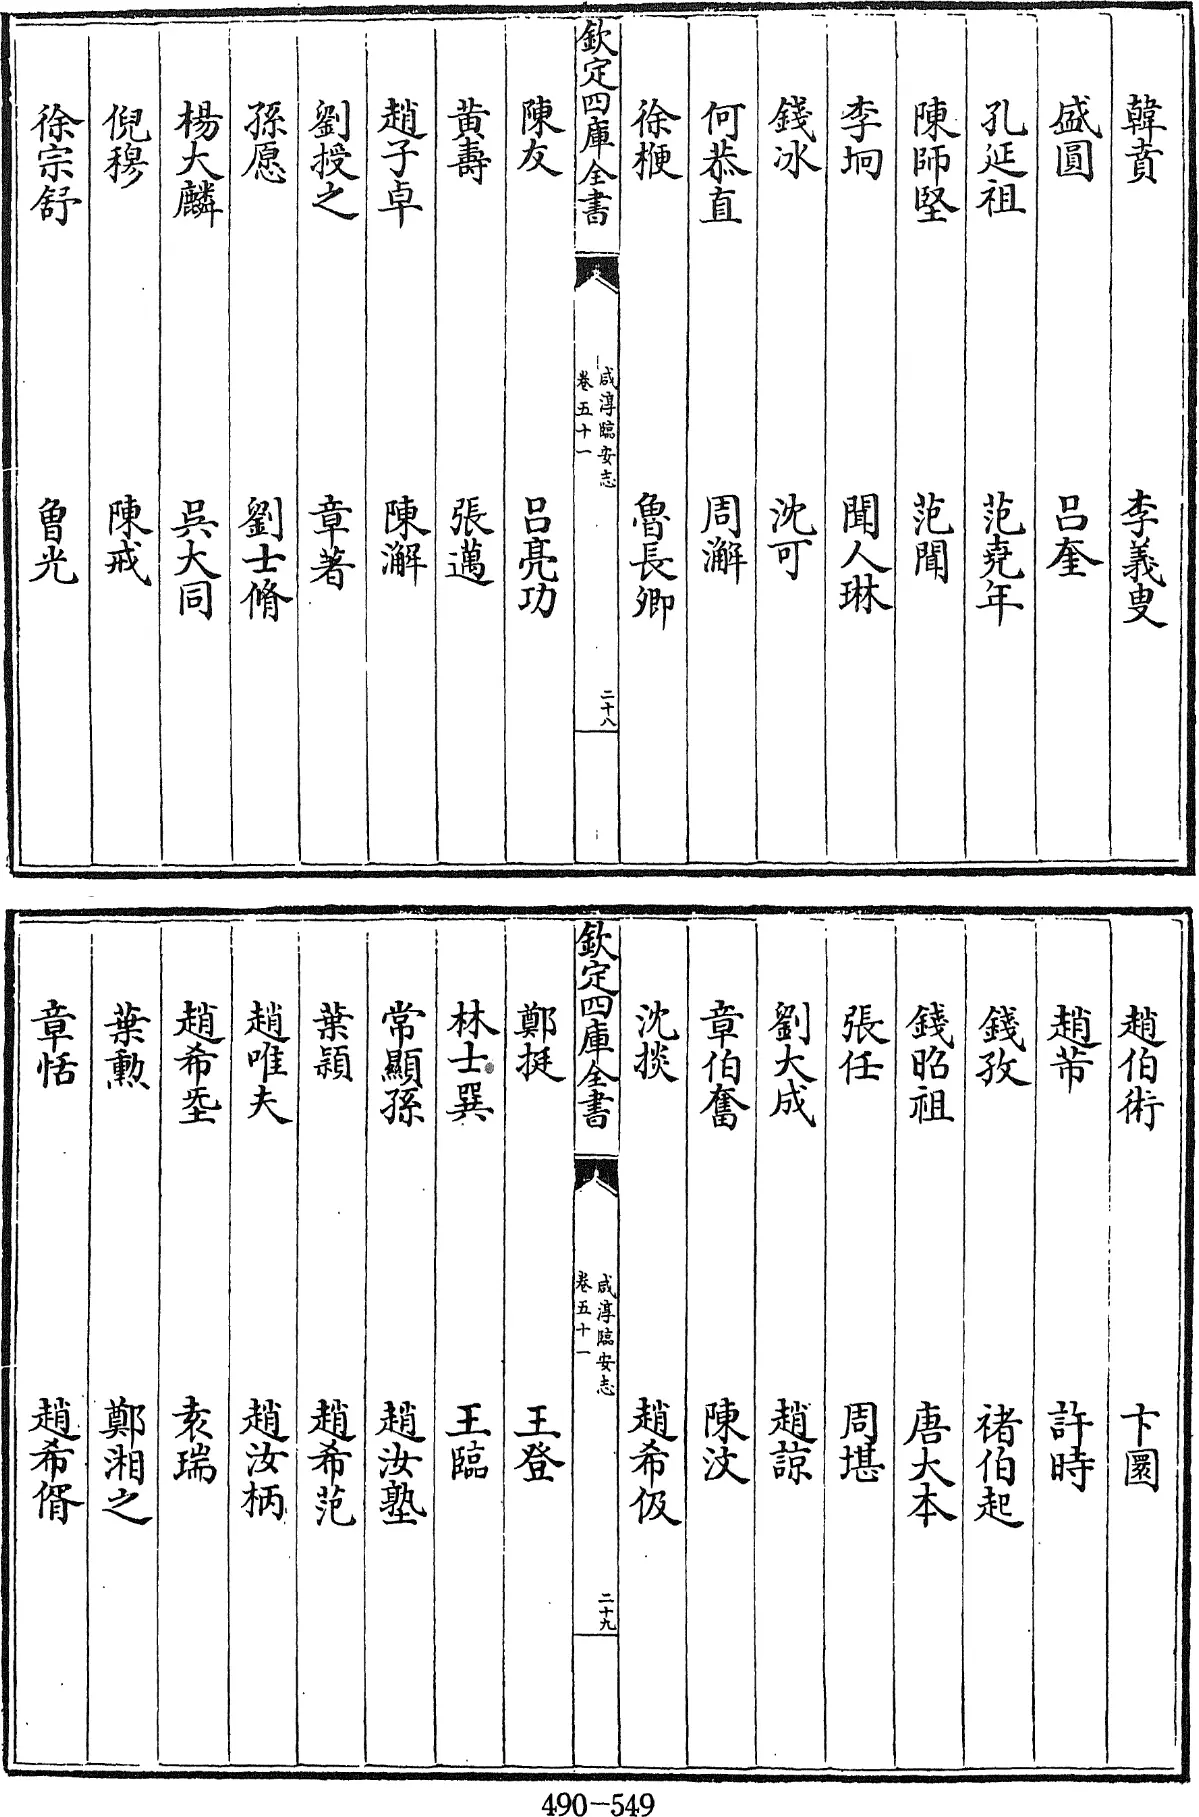 韓賁　李義叟
盛圓　呂奎
孔延祖　范堯年
陳師堅　范聞
李坰　聞人琳
錢冰　沈可
何恭直　周澥
徐梗　魯長卿
欽定四庫全書
咸淳臨安志
卷五十一
二十八
陳友　呂亮功
黃壽　張邁
趙子卓　陳澥
劉授之　章著
孫愿　劉士脩
楊大麟　吳大同
倪穆　陳戒
徐宗舒　魯光
趙伯術　卞圜
趙芾　許時
錢孜　褚伯起
錢昭祖　唐大本
張任　周堪
劉大成　趙諒
章伯奮　陳汶
沈掞　趙希伋
欽定四庫全書
咸淳臨安志
卷五十一
二十九
鄭挺　王登
林士巽　王臨
常顯孫　趙汝塾
葉顈　趙希范
趙唯夫　趙汝柄
趙希坙　袁瑞
葉勲　鄭湘之
章恬　趙希偦
490-549